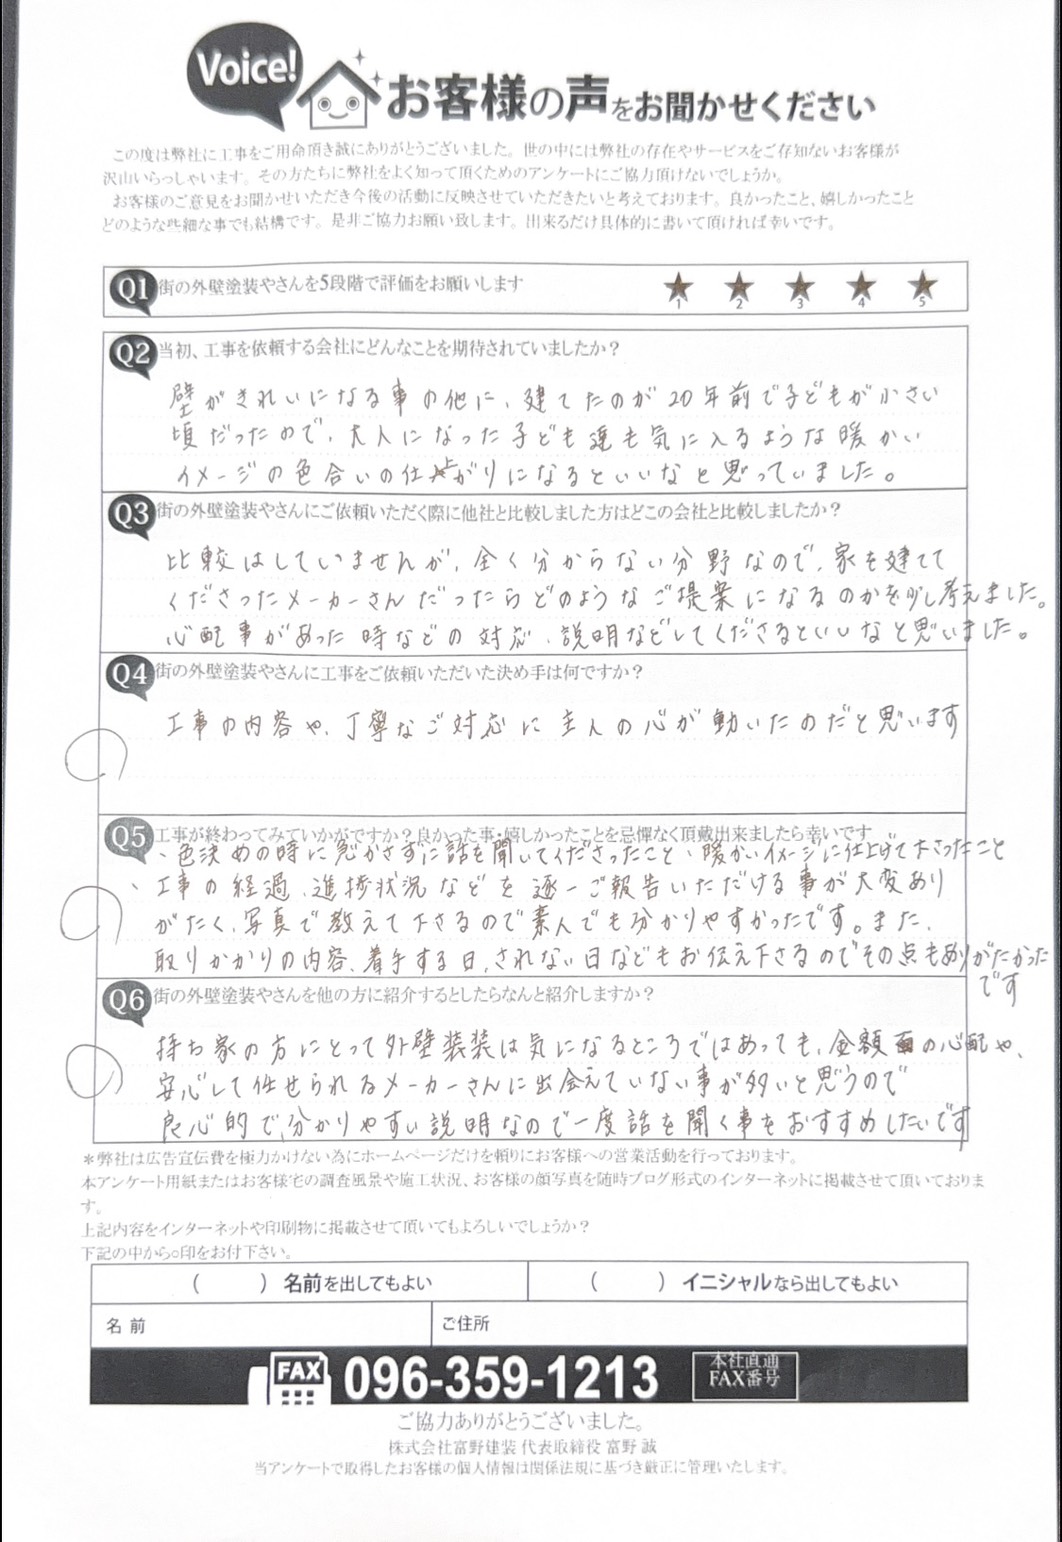 Voice!
お客様の声をお聞かせください
この度は弊社に工事をご用命頂き誠にありがとうございました。世の中には弊社の存在やサービスをご存知ないお客様が
沢山いらっしゃいます。その方たちに弊社をよく知って頂くためのアンケートにご協力頂けないでしょうか。
お客様のご意見をお聞かせいただき今後の活動に反映させていただきたいと考えております。良かったこと、嬉しかったこと
どのような些細な事でも結構です。是非ご協力お願い致します。出来るだけ具体的に書いて頂ければ幸いです。
Q1 街の外壁塗装やさんを5段階で評価をお願いします ★ ★ ★ ★ ★
1 2 3 4 5
Q2 当初、工事を依頼する会社にどんなことを期待されていましたか？
壁がきれいになる事の他に、建てたのが20年前で子どもが小さい
頃だったので、大人になった子ども達も気に入るような暖かい
イメージの色合いの仕上がりになるといいなと思っていました。
Q3 街の外壁塗装やさんにご依頼いただく際に他社と比較しました方はどこの会社と比較しましたか？
比較はしていませんが、全く分からない分野なので、家を建てて
くださったメーカーさんだったらどのようなご提案になるのかを少し考えました。
心配事があった時などの対応、説明などしてくださるといいなと思いました。
Q4 街の外壁塗装やさんに工事をご依頼いただいた決め手は何ですか？
工事の内容や、丁寧なご対応に主人の心が動いたのだと思います
Q5 工事が終わってみていかがですか？良かった事・嬉しかったことを忌憚なく頂戴出来ましたら幸いです
、色決めの時に急かさずに話を聞いてくださったこと、暖かいイメージに仕上げて下さったこと
、工事の経過、進捗状況などを逐一ご報告いただける事が大変あり
がたく、写真で教えて下さるので素人でも分かりやすかったです。また、
取りかかりの内容、着手する日、されない日などもお伝え下さるのでその点もありがたかった
です
Q6 街の外壁塗装やさんを他の方に紹介するとしたらなんと紹介しますか？
持ち家の方にとって外壁装装は気になるところではあっても、金額面の心配や、
安心して任せられるメーカーさんに出会えていない事が多いと思うので
良心的で、分かりやすい説明なので一度話を聞く事をおすすめしたいです
＊弊社は広告宣伝費を極力かけない為にホームページだけを頼りにお客様への営業活動を行っております。
本アンケート用紙またはお客様宅の調査風景や施工状況、お客様の顔写真を随時ブログ形式のインターネットに掲載させて頂いておりま
す。
上記内容をインターネットや印刷物に掲載させて頂いてもよろしいでしょうか？
下記の中から○印をお付下さい。
（　　）名前を出してもよい （　　）イニシャルなら出してもよい
名 前 ご住所
FAX 096-359-1213 本社直通
FAX番号
ご協力ありがとうございました。
株式会社富野建装 代表取締役 富野 誠
当アンケートで取得したお客様の個人情報は関係法規に基づき厳正に管理いたします。